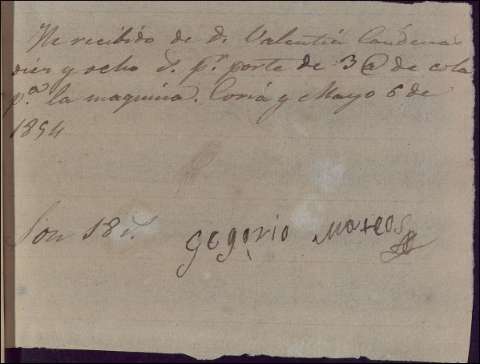 He recibido de dn Valentin Cardenas
diez y ocho r. pr. porte de 3 @ de cola
pa. la maquina. Coria y Mayo 6 de
1854
Son 18 r.
Gegorio Mateos